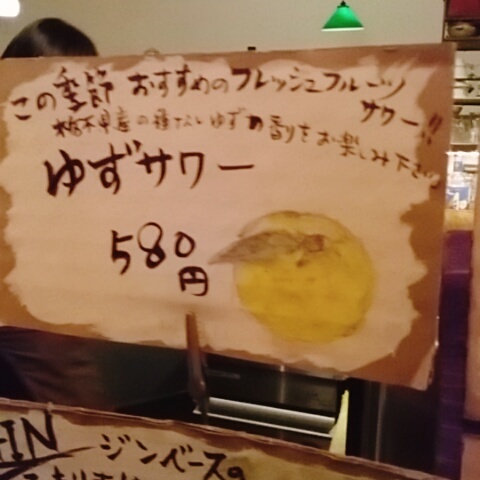 この季節 おすすめのフレッシュフルーツ
サワー!!
栃木県産の種なしゆずの香りをお楽しみ下さい
ゆずサワー
580
円
GIN ジンベースの